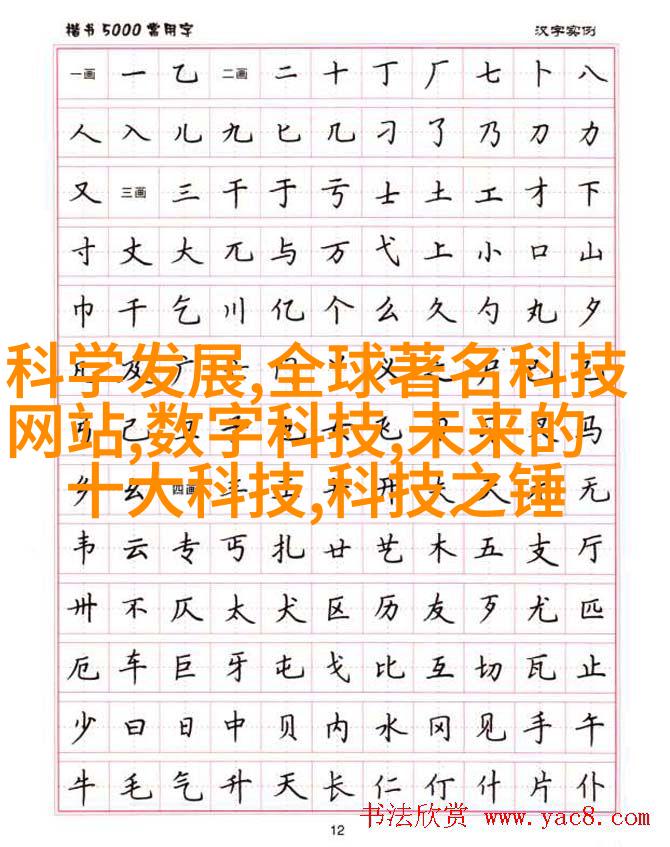 楷书5000常用字 汉字实例
一画 一 乙 二画 二 十 丁 厂 七 卜 八
人 入 儿 九 匕 几 刁 了 乃 刀 力
又 三画 三 干 于 亏 士 土 工 才 下
寸 丈 大 兀 与 万 弋 上 小 口 山
巾 千 乞 川 亿 个 么 久 勺 丸 夕
科学发展,全球著名科技
网站,数字科技,未来的
十大科技,科技之锤
马
乡 幺 四画 无
韦 云 专 丐 扎 廿 艺 木 五 支 厅
卅 不 仄 太 犬 区 历 友 歹 尤 匹
厄 车 巨 牙 屯 戈 比 互 切 瓦 止
少 曰 日 中 贝 内 水 冈 见 手 午
牛 毛 气 升 夭 长 仁 仃 什 片 仆
书法欣赏 www.yac8.com
12